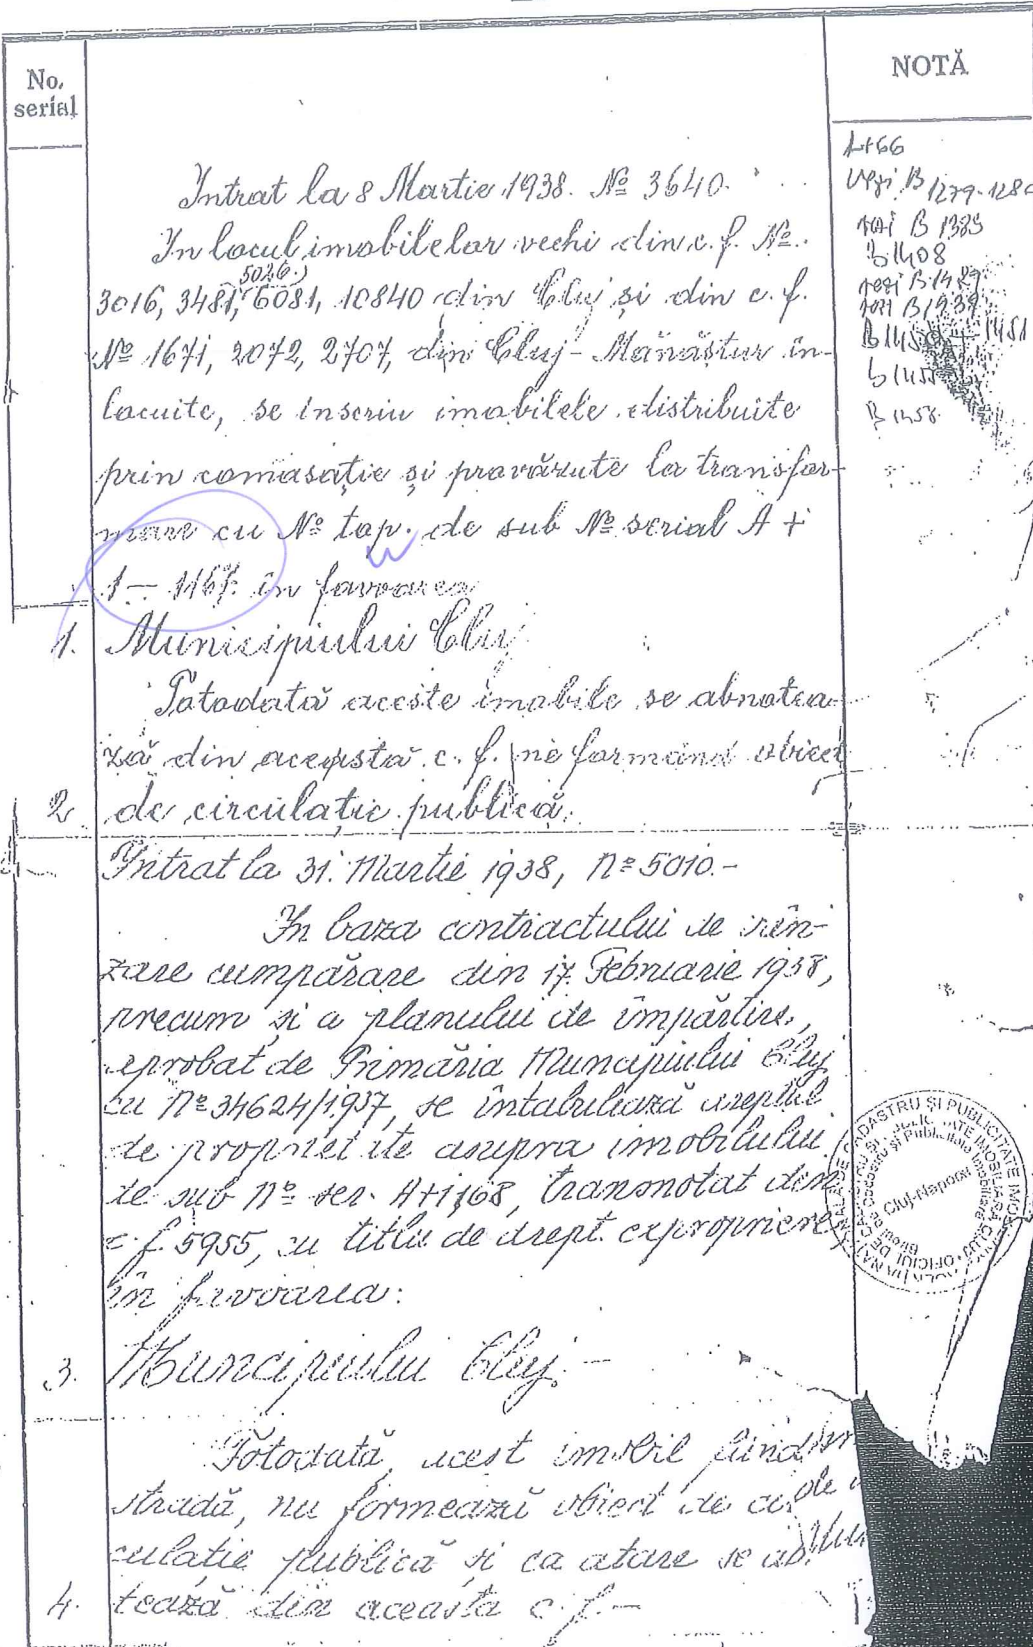 No.
serial
NOTĂ
Intrat la 8 Martie 1938. № 3640.
In locul imobilelor vechi din c. f. №.
5026.
3016, 3481, 6081, 10840 din Cluj și din c. f.
№ 1671, 2072, 2707, din Cluj-Mănăștur în-
locuite, se înscriu imobilele distribuite
prin comasație și pravăzute la transfor-
mare cu № top. de sub № serial A +
1 – 1167. în favoarea
1. Municipiului Cluj
Totodată aceste imobile se abnotea-
ză din aceasta c. f. ne formând obiect
2. de circulație publică.
Intrat la 31. Martie 1938, № 5010.-
In baza contractului de vân-
zare cumpărare din 17. Februarie 1938,
precum și a planului de împărțire,
aprobat de Primăria Muncipiului Cluj
cu № 34624/1937, se întabulează dreptul
de proprietate asupra imobilului
de sub № ser. A+1168, transnotat din
c. f. 5955, cu titlu de drept expropriere
în favoarea:
3. Muncipiului Cluj.-
Totodată, acest imobil fiind
stradă, nu formează obiect de cir
culație publică și ca atare se ab
4. tează din aceasta c. f.-
B 1279-128
B 1385
B 1408
B 1439
1451
B 1455
B 1458
Cluj-Napoca